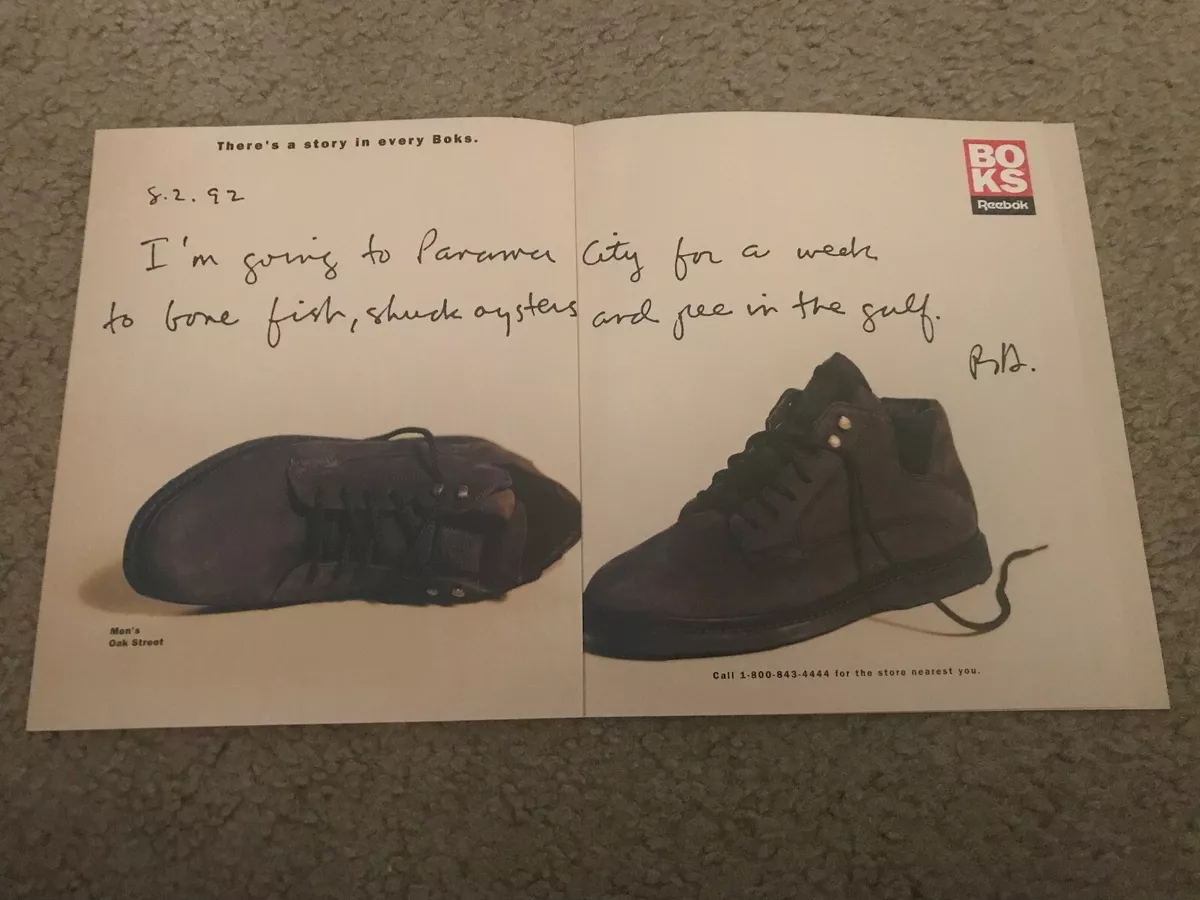 There's a story in every Boks.
BO
KS
Reebok
8.2.92
I'm going to Panama City for a week
to bone fish, shuck oysters and pee in the gulf.
Men's
Oak Street
Call 1-800-843-4444 for the store nearest you.